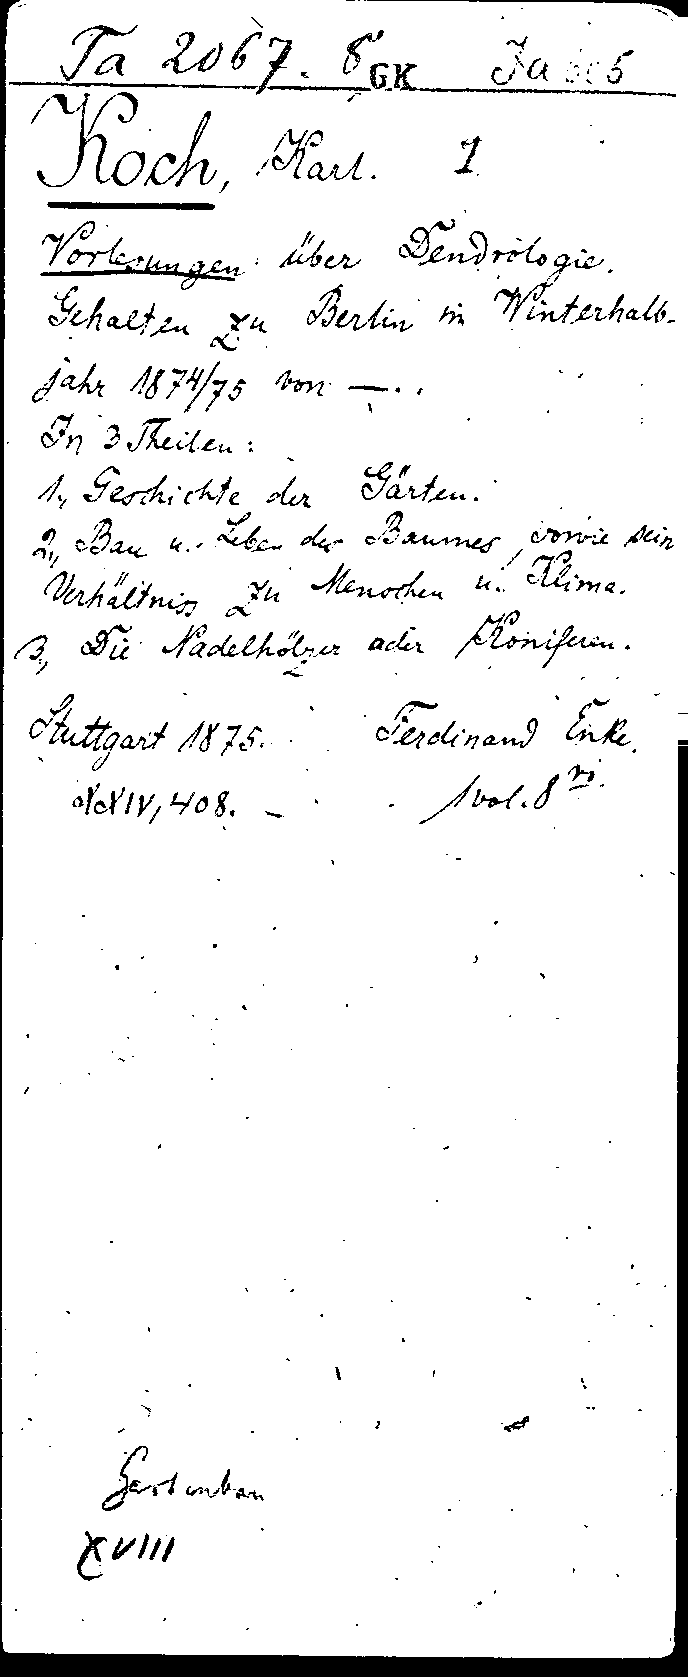 Ta 2067. 8° GK
Koch, Karl. 1
Vorlesungen über Dendrologie.
Gehalten zu Berlin im Winterhalb-
jahr 1874/75 von —.
In 3 Theilen:
1., Geschichte der Gärten.
2., Bau u. Leben des Baumes, sowie sein
Verhältniss zu Menschen u. Klima.
3., Die Nadelhölzer oder Koniferen.
Stuttgart 1875. Ferdinand Enke.
XXIV, 408. – 1 vol. 8vo.
Gartenbau
XVIII